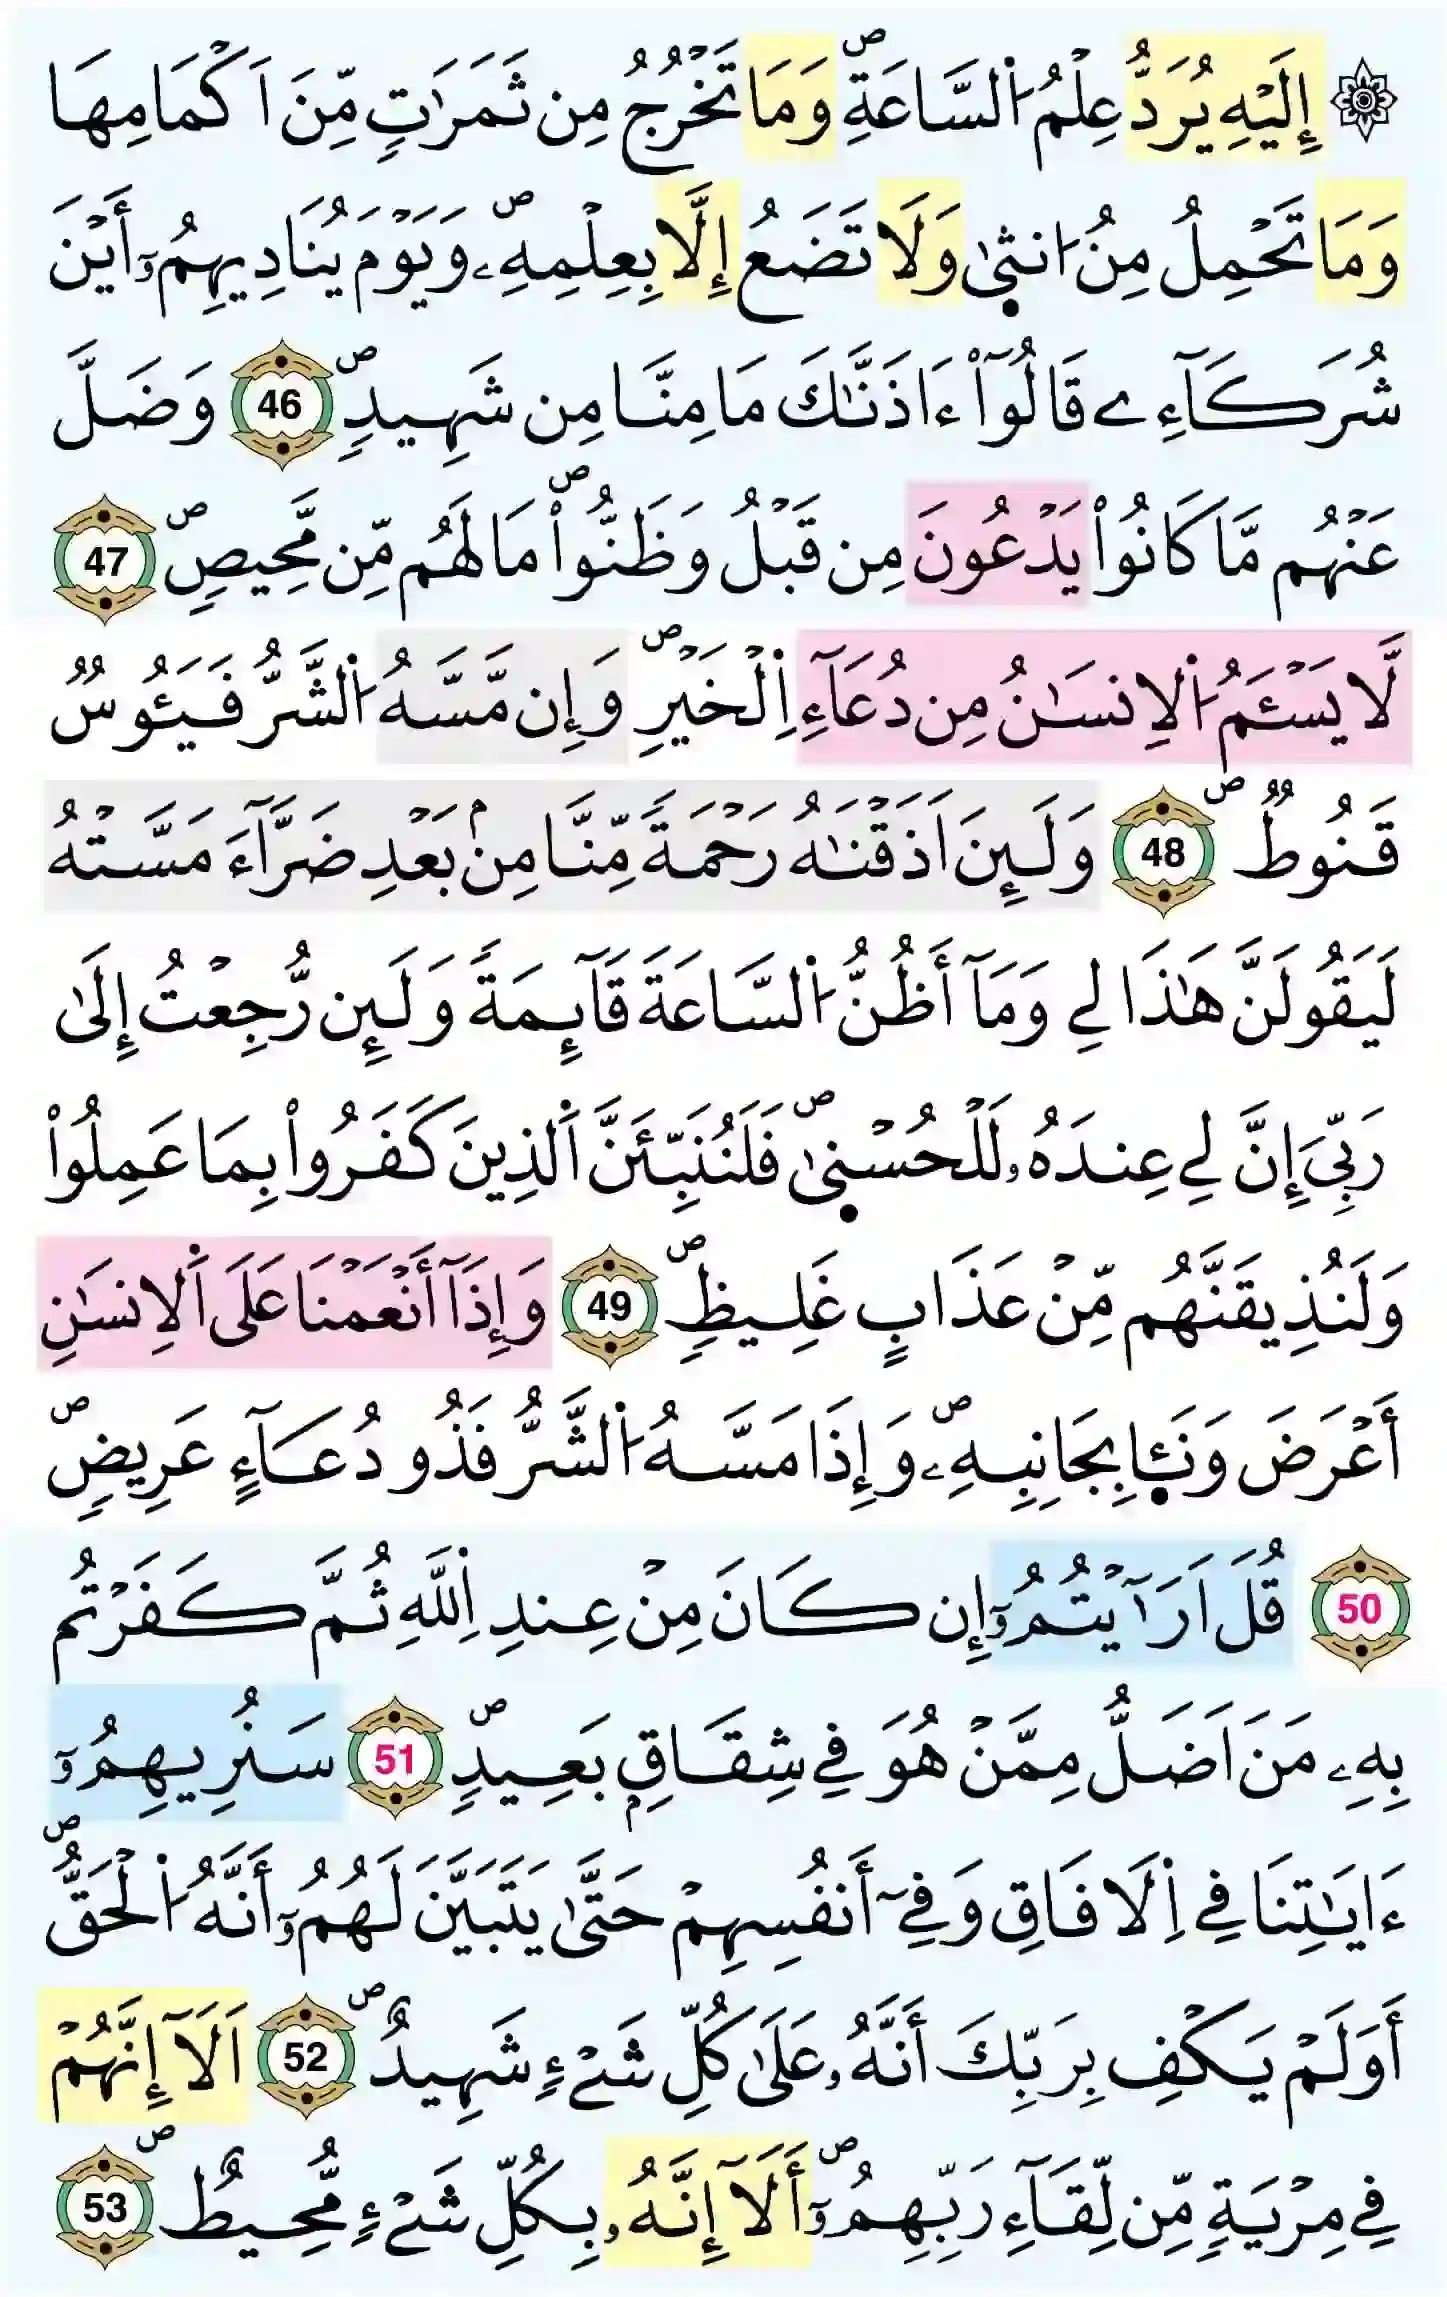 ۞ إِلَيْهِ يُرَدُّ عِلْمُ اُ۬لسَّاعَةِۖ وَمَا تَخْرُجُ مِن ثَمَرَٰتٍ مِّنَ اَكْمَامِهَا
وَمَا تَحْمِلُ مِنُ ا۟نث۪ىٰ وَلَا تَضَعُ إِلَّا بِعِلْمِهِۦۖ وَيَوْمَ يُنَادِيهِمُۥٓ أَيْنَ
شُرَكَآءِے قَالُوٓاْ ءَاذَنَّٰكَ مَا مِنَّا مِن شَهِيدٍۖ 46 وَضَلَّ
عَنْهُم مَّا كَانُواْ يَدْعُونَ مِن قَبْلُ وَظَنُّواْۖ مَا لَهُم مِّن مَّحِيصٍۖ 47
لَّا يَسْـَٔمُ اُ۬لِانسَٰنُ مِن دُعَآءِ اِ۬لْخَيْرِۖ وَإِن مَّسَّهُ اُ۬لشَّرُّ فَيَـُٔوسٞ
قَنُوطٞۖ 48 وَلَئِنَ اَذَقْنَٰهُ رَحْمَةٗ مِّنَّا مِنۢ بَعْدِ ضَرَّآءَ مَسَّتْهُ
لَيَقُولَنَّ هَٰذَا لِے وَمَآ أَظُنُّ اُ۬لسَّاعَةَ قَآئِمَةٗ وَلَئِن رُّجِعْتُ إِلَىٰ
رَبِّيَ إِنَّ لِے عِندَهُۥ لَلْحُسْن۪ىٰۖ فَلَنُنَبِّئَنَّ اَ۬لذِينَ كَفَرُواْ بِمَا عَمِلُواْ
وَلَنُذِيقَنَّهُم مِّنْ عَذَابٍ غَلِيظٍۖ 49 وَإِذَآ أَنْعَمْنَا عَلَى اَ۬لِانسَٰنِ
أَعْرَضَ وَنَـ۪ٔا بِجَانِبِهِۦۖ وَإِذَا مَسَّهُ اُ۬لشَّرُّ فَذُو دُعَآءٍ عَرِيضٖۖ
50 قُلَ اَرَآيْتُمُۥٓ إِن كَانَ مِنْ عِندِ اِ۬للَّهِ ثُمَّ كَفَرْتُم
بِهِۦ مَنَ اَضَلُّ مِمَّنْ هُوَ فِے شِقَاقِۢ بَعِيدٍۖ 51 سَنُرِيهِمُۥٓ
ءَايَٰتِنَا فِے اِ۬لَافَاقِ وَفِےٓ أَنفُسِهِمْ حَتَّىٰ يَتَبَيَّنَ لَهُمُۥٓ أَنَّهُ اُ۬لْحَقُّۖ
أَوَلَمْ يَكْفِ بِرَبِّكَ أَنَّهُۥ عَلَىٰ كُلِّ شَےْءٖ شَهِيدٌۖ 52 اَلَآ إِنَّهُمْ
فِے مِرْيَةٖ مِّن لِّقَآءِ رَبِّهِمُۥٓۖ أَلَآ إِنَّهُۥ بِكُلِّ شَےْءٖ مُّحِيطٌۖ 53